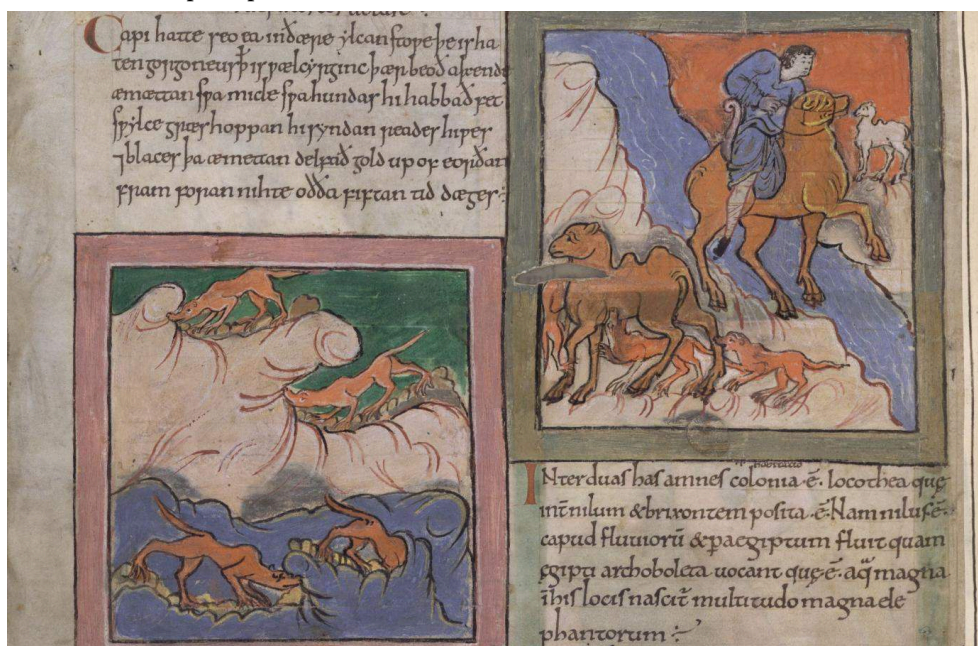 Capi hatte seo ea inðære ylcan stoƿe þe is ha
ten gorgoneus ꝥ is ƿælcyrginc þær beoð akende
æmættan sƿa micle sƿa hundas hi habbað fet
sƿylce græshoppan hi syndan reades hiƿes
⁊ blaces þa æmettan delfað gold up of eorðan
fram foran nihte oððа fiftan tid dæges :
habitatio
INter duas has amnes colonia ē· locothea quę
int̄ nilum & brixontem posita ē· Nam nilus ē·
capud fluuiorū & p aegiptum fluit quam
ęgipti archoboleta uocant quę·ē· aq̄ magna
īhis locis nascit̄ multitudo magna ele
phantorum :